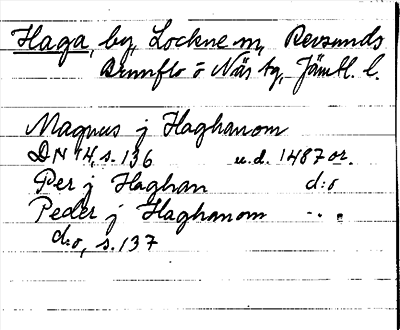 Haga, by, Lockne sn, Revsunds
Brunflo o Näs tg, Jämtl. l.
Magnus j Haghanom
DN 14, s. 136 u.d. 1487 or.
Per j Haghan d:o
Peder j Haghanom -..
d:o, s. 137